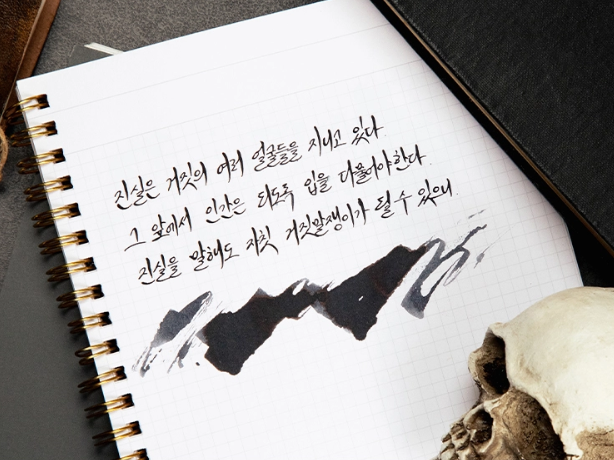 진실은 거짓의 여러 얼굴들을 지니고 있다.
그 앞에서 인간은 되도록 입을 다물어야한다.
진실을 말해도 자칫 거짓말쟁이가 될 수 있으니.